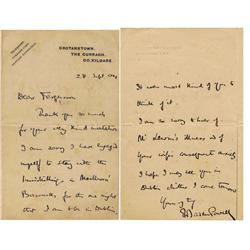 GROTANSTOWN,
THE CURRAGH,
CO. KILDARE
28. Sept. 1904
Dear Ferguson
Thank you so much
for your very kind invitation
I am sorry I have engaged
myself to stay with the
Inniskilling in Marlboro'
Barracks for the one night
that I am to be in Dublin.
It was most kind of you to
think of it.
I am so sorry to hear of
illness of
your wife's consequent anxiety
I hope I may see you in
Dublin
Yours
Baden Powell